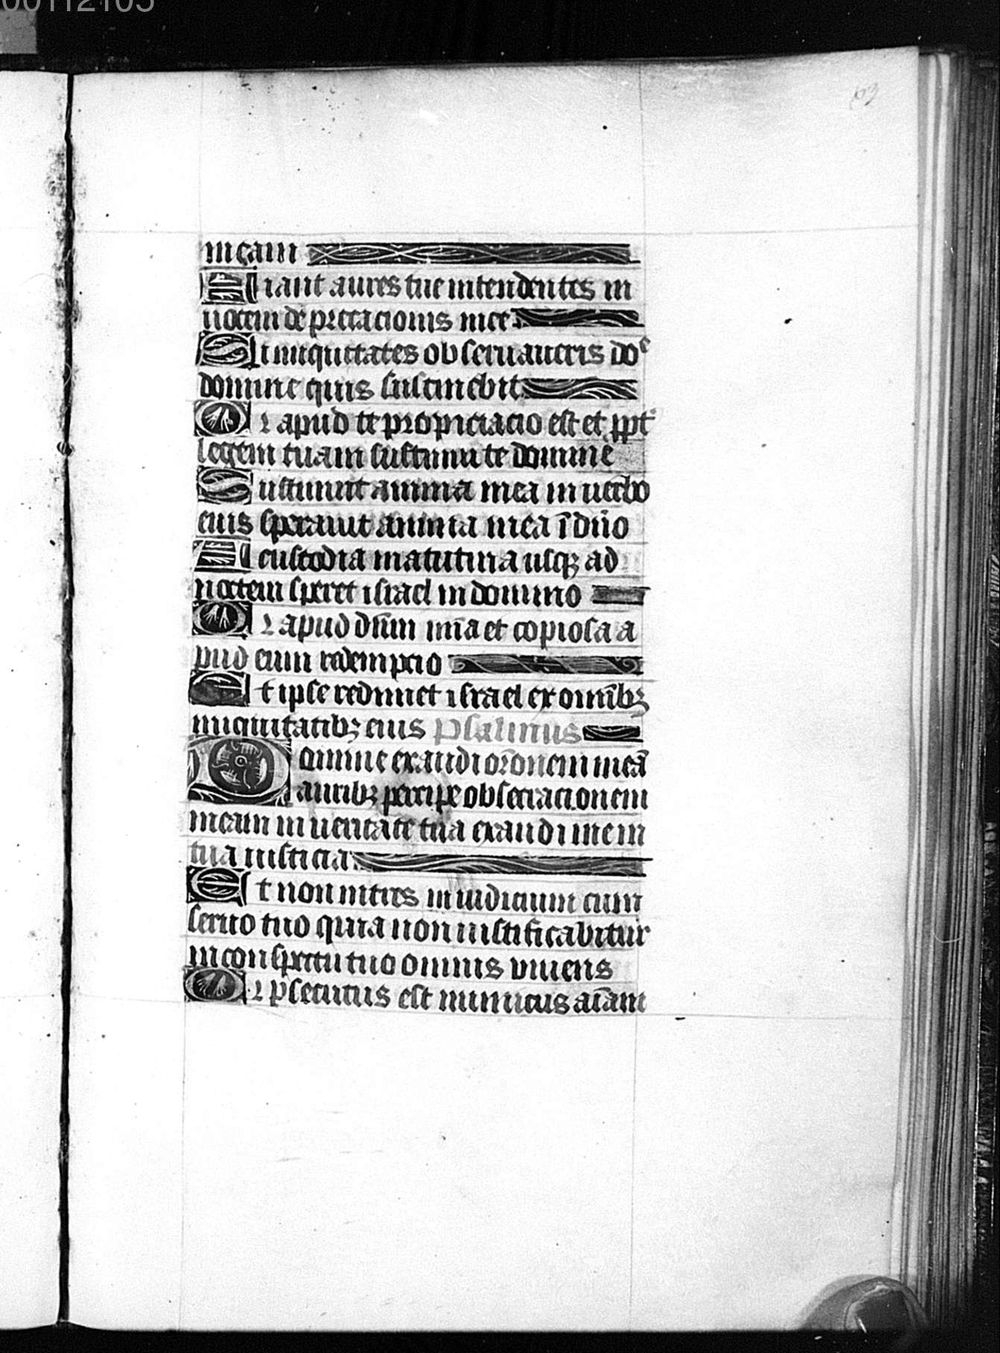 00112105
meam
Fiant aures tue intendentes in
uocem deprecacionis mee
Si iniquitates obseruaueris do͞e
domine quis sustinebit
Quia apud te propiciacio est et ꝓpt᷑
legem tuam sustinui te domine
Sustinuit anima mea in uerbo
eius sperauit anima mea ī dn̄o
A custodia matutina usqꝫ ad
noctem speret israel in domino
Quia apud dn̄m mīa et copiosa a
pud eum redempcio
Et ipse redimet israel ex omībꝫ
iniquitatibꝫ eius Psalmus
Domine exaudi orōnem meā
auribꝫ percipe obsecracionem
meam in ueritate tua exaudi me in
tua iusticia
Et non intres in iudicium cum
seruo tuo quia non iustificabitur
in conspectu tuo omnis viuens
Quia ꝑsecutus est inimicus aīam